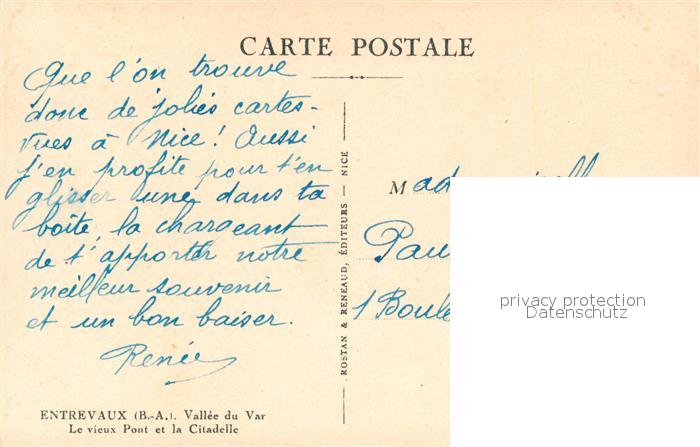 CARTE POSTALE
Que l'on trouve
donc de jolies cartes-
vues à Nice ! Aussi
j'en profite pour t'en
glisser une dans ta
boîte, la chargeant
de t'apporter notre
meilleur souvenir
et un bon baiser.
Renée
ENTREVAUX (B.-A.). Vallée du Var
Le vieux Pont et la Citadelle
ROSTAN & RENEAUD, ÉDITEURS — NICE
Pau
1 Boule
privacy protection
Datenschutz